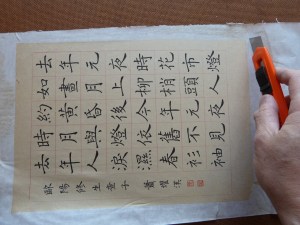 去年元夜時花市燈
如晝月上柳梢頭人
約黃昏後今年元夜
時月與燈依舊不見
去年人淚濕春衫袖
歐陽修生查子 蕭